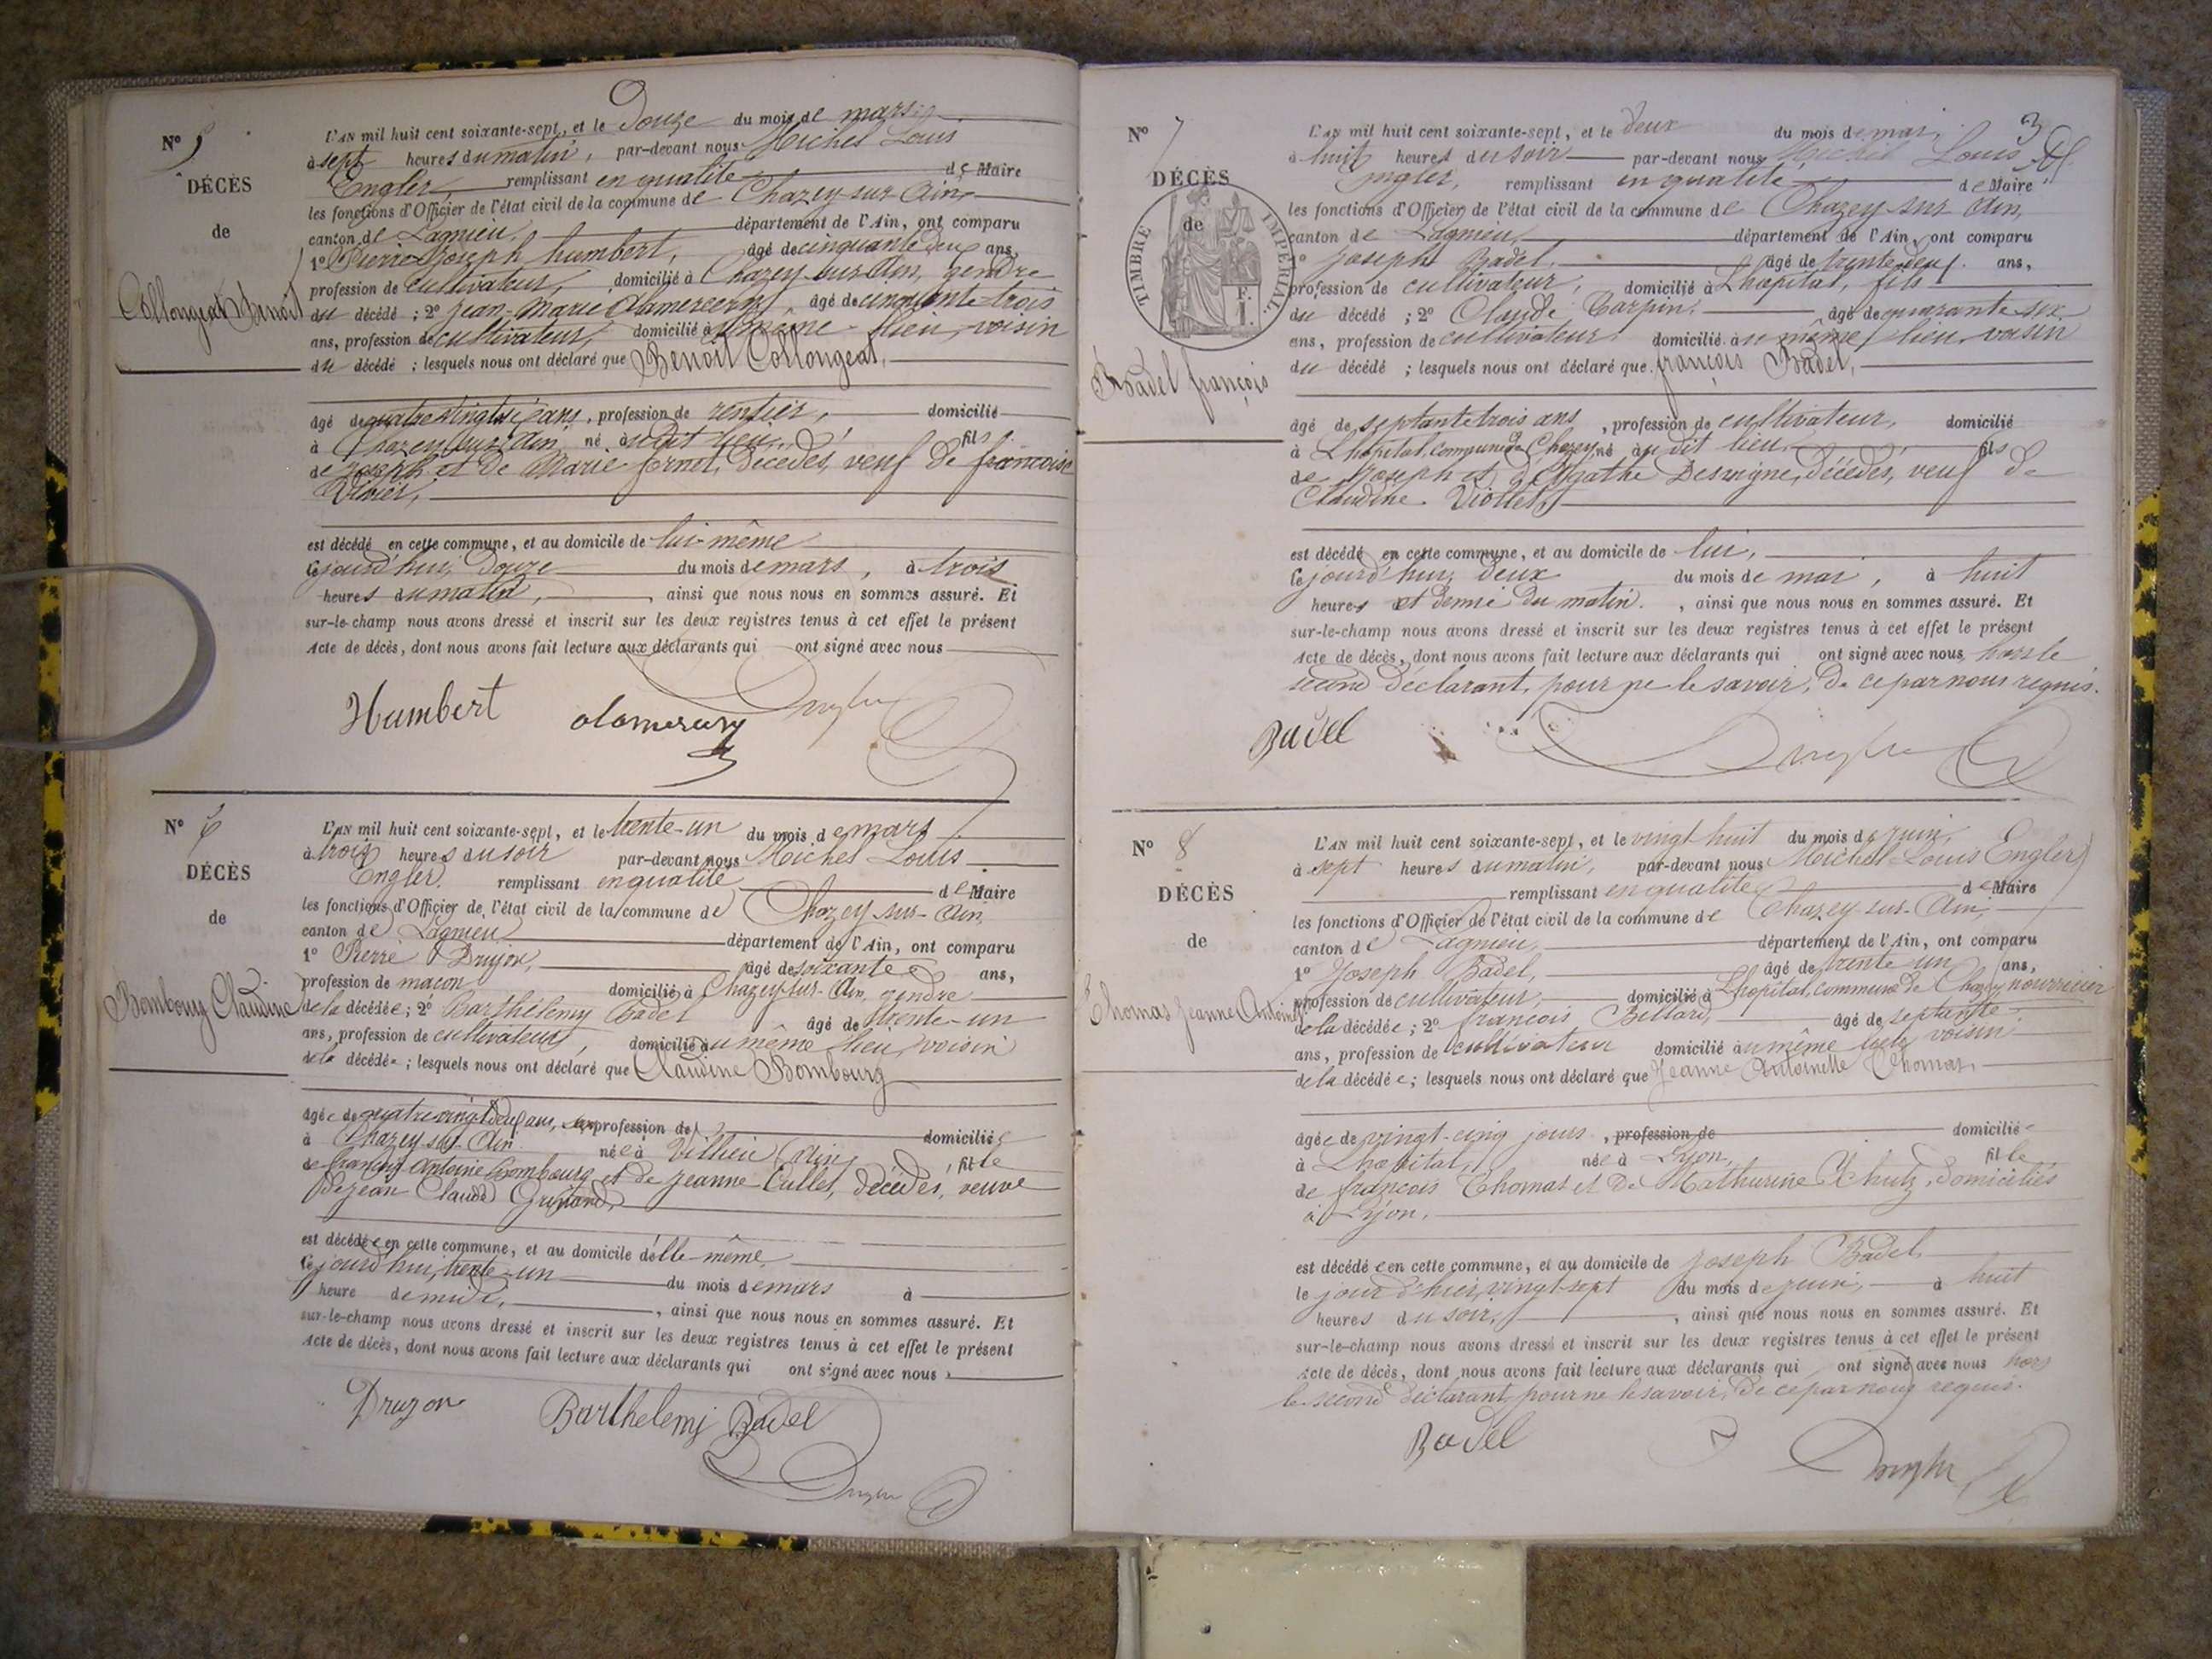 N° 5
DÉCÈS
de
Collongeat Benoit
L'AN mil huit cent soixante-sept, et le douze du mois de mars
à sept heures du matin, par-devant nous Michel Louis
Engler, remplissant en qualité de Maire
les fonctions d'Officier de l'état civil de la commune de Chazey-sur-Ain,
canton de Lagnieu, département de l'Ain, ont comparu
1° Pierre Joseph humbert, âgé de cinquante deux ans,
profession de cultivateur, domicilié à Chazey-sur-Ain, gendre
du décédé ; 2° Jean-Marie âgé de cinquante trois
ans, profession de cultivateur, domicilié au même lieu, voisin
du décédé ; lesquels nous ont déclaré que Benoit Collongeat,
âgé de ans, profession de rentier, domicilié
à Chazey-sur-Ain, né au dit lieu, fils
de Joseph et de Marie fornet, décédés, veuf de francoise
Vivier,
est décédé en cette commune, et au domicile de lui-même
cejourd'hui, douze du mois de mars, à trois
heures du matin, ainsi que nous nous en sommes assuré. Et
sur-le-champ nous avons dressé et inscrit sur les deux registres tenus à cet effet le présent
Acte de décès, dont nous avons fait lecture aux déclarants qui ont signé avec nous
Humbert Engler
N° 6
DÉCÈS
de
Bombourg Claudine
L'AN mil huit cent soixante-sept, et le trente-un du mois de mars
à trois heures du soir par-devant nous Michel Louis
Engler, remplissant en qualité de Maire
les fonctions d'Officier de l'état civil de la commune de Chazey-sur-Ain,
canton de Lagnieu, département de l'Ain, ont comparu
1° Pierre Drujon, âgé de soixante ans,
profession de maçon domicilié à Chazey-sur-Ain, gendre
de la décédée ; 2° Barthélemy Badel âgé de trente-un
ans, profession de cultivateur, domicilié au même lieu, voisin
de la décédée ; lesquels nous ont déclaré que Claudine Bombourg
âgée de quatre vingt deux ans, profession de domiciliée
à Chazey-sur-Ain née à Villieu (Ain), fille
de Antoine Bombourg et de Jeanne Cullet, décédés, veuve
de Jean Claude
est décédée en cette commune, et au domicile d'elle-même
cejourd'hui, trente-un du mois de mars à
heure de midi, ainsi que nous nous en sommes assuré. Et
sur-le-champ nous avons dressé et inscrit sur les deux registres tenus à cet effet le présent
Acte de décès, dont nous avons fait lecture aux déclarants qui ont signé avec nous
Drujon Barthelemi Badel
Engler
3
N° 7
DÉCÈS
de
TIMBRE IMPÉRIAL
Badel françois
L'AN mil huit cent soixante-sept, et le deux du mois de mai,
à huit heures du soir par-devant nous Michel Louis
Engler, remplissant en qualité de Maire
les fonctions d'Officier de l'état civil de la commune de Chazey-sur-Ain,
canton de Lagnieu, département de l'Ain, ont comparu
1° Joseph Badel, âgé de trente deux ans,
profession de cultivateur, domicilié à Lhopital, fils
du décédé ; 2° Claude Carpin, âgé de quarante six
ans, profession de cultivateur domicilié au même lieu, voisin
du décédé ; lesquels nous ont déclaré que françois Badel,
âgé de septante trois ans, profession de cultivateur, domicilié
à Lhopital, commune de Chazey né au dit lieu, fils
de Joseph et d'Agathe Desvigne, décédés, veuf de
Claudine Viollet,
est décédé en cette commune, et au domicile de lui,
cejourd'hui, deux du mois de mai, à huit
heures et demie du matin, ainsi que nous nous en sommes assuré. Et
sur-le-champ nous avons dressé et inscrit sur les deux registres tenus à cet effet le présent
Acte de décès, dont nous avons fait lecture aux déclarants qui ont signé avec nous, hors le
second déclarant, pour ne le savoir, de ce par nous requis.
Badel Engler
N° 8
DÉCÈS
de
Thomas Jeanne Antoinette
L'AN mil huit cent soixante-sept, et le vingt huit du mois de juin,
à sept heures du matin, par-devant nous Michel Louis Engler
remplissant en qualité de Maire
les fonctions d'Officier de l'état civil de la commune de Chazey-sur-Ain,
canton de Lagnieu, département de l'Ain, ont comparu
1° Joseph Badel, âgé de trente un ans,
profession de cultivateur, domicilié à Lhopital, commune de Chazey, nourricier
de la décédée ; 2° françois Billard, âgé de septante
ans, profession de cultivateur domicilié au même lieu, voisin
de la décédée ; lesquels nous ont déclaré que Jeanne Antoinette Thomas,
âgée de vingt-cinq jours, profession de domiciliée
à Lhopital, née à Lyon, fille
de françois Thomas et de Mathurine domiciliés
à Lyon,
est décédée en cette commune, et au domicile de Joseph Badel
le jour d'hier, vingt-sept du mois de juin, à huit
heures du soir, ainsi que nous nous en sommes assuré. Et
sur-le-champ nous avons dressé et inscrit sur les deux registres tenus à cet effet le présent
Acte de décès, dont nous avons fait lecture aux déclarants qui ont signé avec nous hors
le second déclarant, pour ne le savoir, de ce par nous requis.
Badel Engler